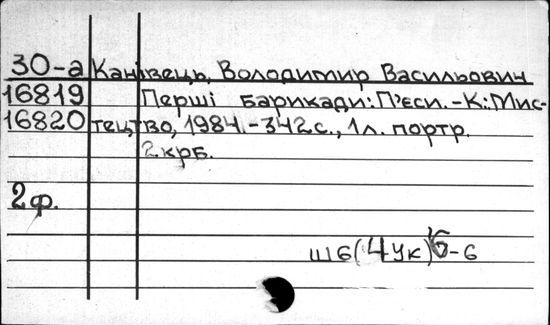 30-а Канівець, Володимир Васильович
16819 Перші барикади: П'єси.-К.: Мис-
16820 тецтво, 1984.-342с., 1л. портр.
2крб.
2ф.
Ш6(4Ук)6-6